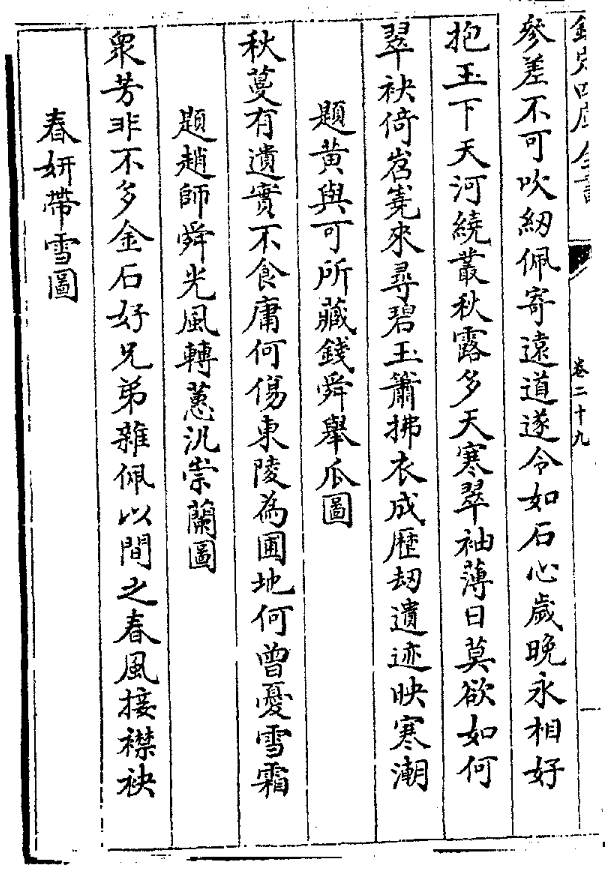 欽定四庫全書
卷二十九
參差不可吹紉佩寄遠道遂令如石心歲晚永相好
抱玉下天河繞叢秋露多天寒翠袖薄日莫欲如何
翠袂倚岧嶤來尋碧玉簫拂衣成歷劫遺迹映寒潮
題黃與可所藏錢舜舉瓜圖
秋蔓有遺實不食庸何傷東陵為圃地何曾憂雪霜
題趙師舜光風轉蕙汎崇蘭圖
衆芳非不多金石好兄弟雜佩以間之春風接襟袂
春妍帶雪圖